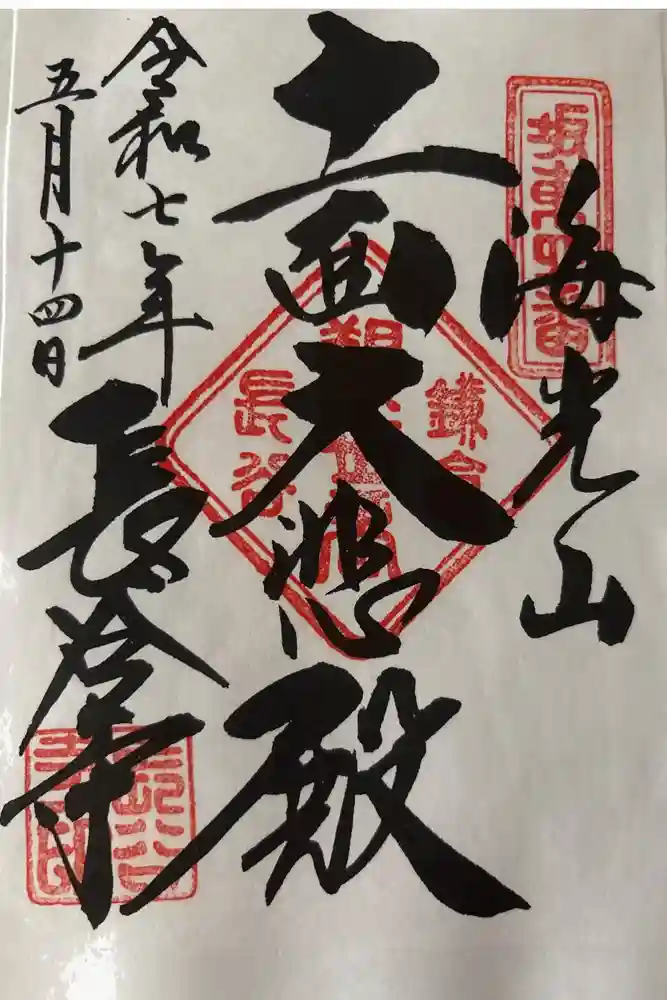 坂東四番
海光山
十一面大悲殿
鎌倉
長谷
長谷寺
令和七年
五月十四日